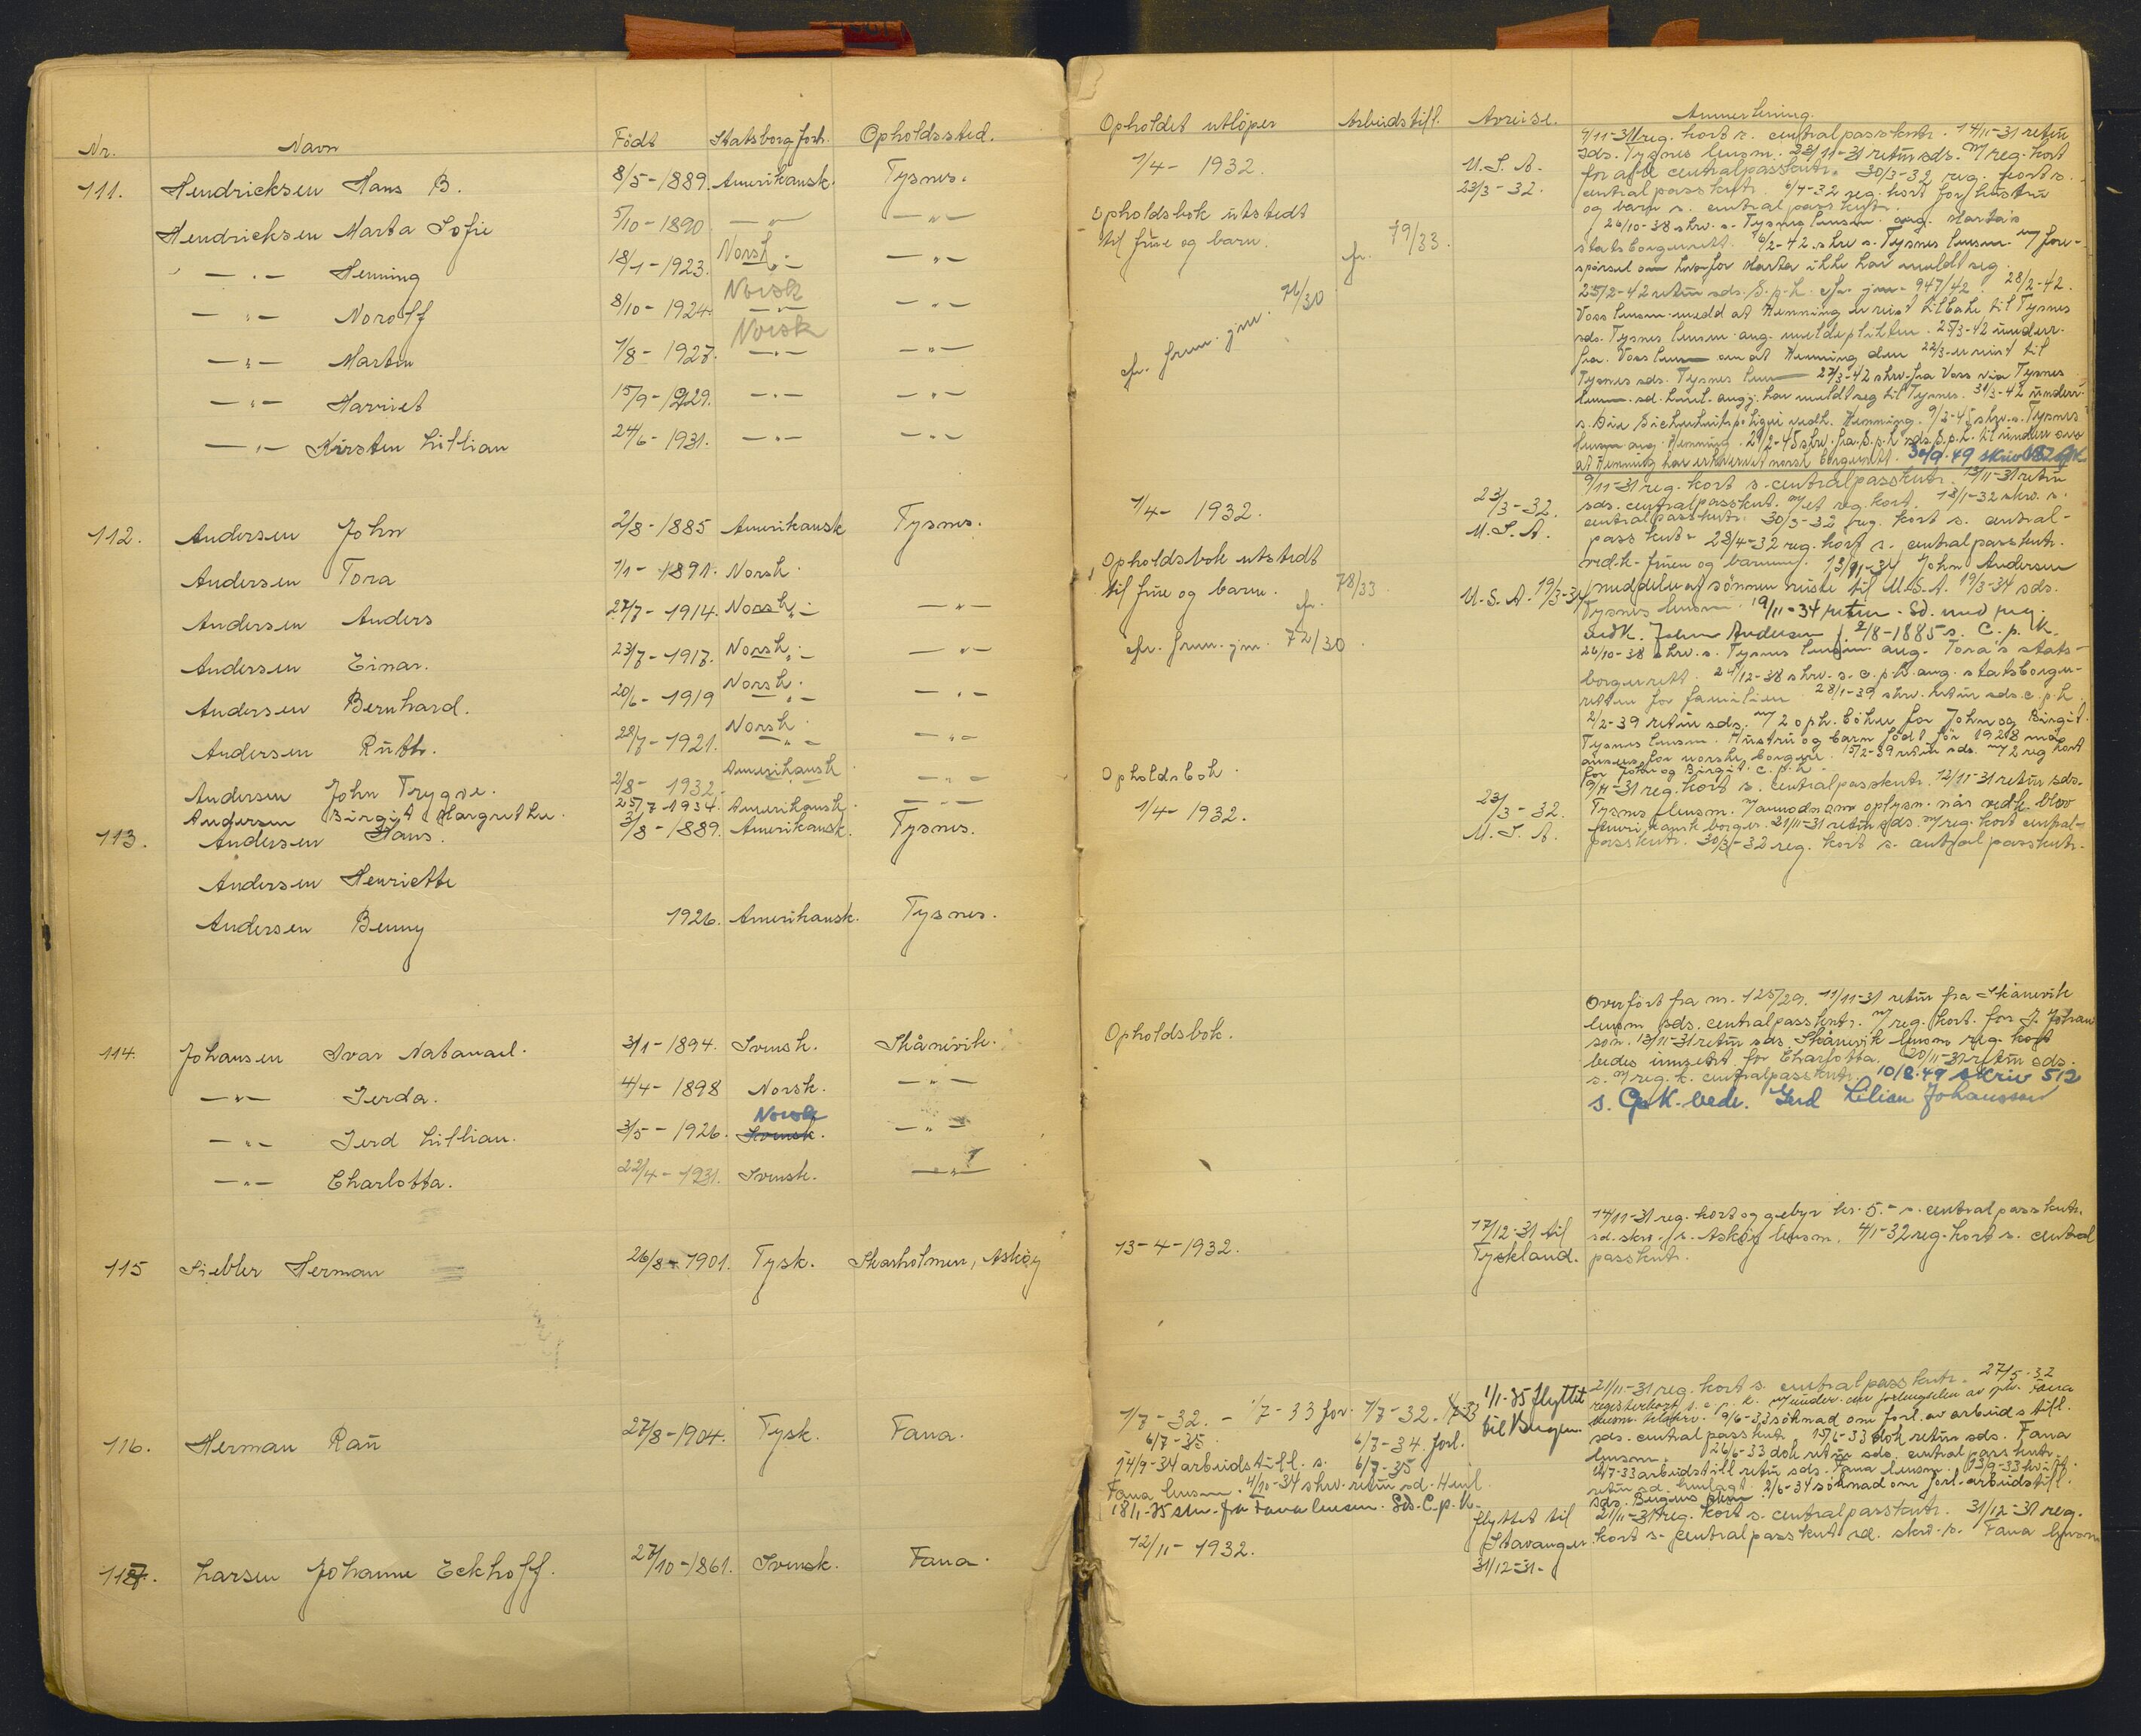 Nr. Navn Født Statsborgforh. Opholdssted.
111. Hendricksen Hans B. 8/5-1889. Amerikansk. Tysnes.
Hendricksen Marta Sofie 5/10-1890 —"— —"—
—"— Henning 18/1-1923. Norsk. —"—
—"— Norolf 8/10-1924. Norsk —"—
—"— Martin 1/8-1927. Norsk —"— —"—
—"— Harriet 15/9-1929. —"— —"—
—"— Kirsten Lillian 24/6-1931. —"— —"—
112. Andersen John 2/8-1885 Amerikansk Tysnes.
Andersen Tora 1/1-1891. Norsk.
Andersen Anders 27/7-1914. Norsk —"—
Andersen Einar. 23/7-1917. Norsk. —"—
Andersen Bernhard. 20/6-1919 Norsk. —"—
Andersen Ruth. 28/7-1921. Norsk —"—
Andersen John Trygve. 2/8-1932. Amerikansk —"—
Andersen Birgit Margrethe. 25/7-1934. Amerikansk. —"—
113. Andersen Hans. 3/8-1889. Amerikansk. Tysnes.
Andersen Henriette
Andersen Benny 1926. Amerikansk. Tysnes.
114. Johansen Ivar Natanael. 3/1-1894. Svensk. Skånevik.
—"— Gerda. 4/4-1898 Norsk. —"—
—"— Gerd Lillian. 3/5-1926. Norsk Svensk. —"—
—"— Charlotta. 22/4-1931. Svensk. —"—
115 Siebler Herman 26/8-1901. Tysk. Skarholmen, Askøy
116. Herman Rau 27/8-1904. Tysk. Fana.
117. Larsen Johanne Eckhoff. 27/10-1861. Svensk. Fana.
Opholdet utløper Arbeidstill. Avreise. Anmerkning.
1/4-1932. U.S.A.
23/3-32.
Opholdsbok utstedt
til frue og barn. cfr. 79/33.
cfr. frem. jnr. 76/30
1/4-1932. 23/3-32.
U.S.A.
Opholdsbok utstedt
til frue og barn. cfr. 78/33. U.S.A. 19/3-34
cfr. frem. jnr. 72/30
Opholdsbok.
1/4-1932. 23/3-32.
U.S.A.
Opholdsbok.
13-4-1932. 17/12-31 til
Tyskland.
1/7-32. - 1/7-33 for. 1/7-32. 1/7-33 1/1-35 flyttet
6/7-35. 6/7-34. forl. til Bergen.
14/9-34 arbeidstill. s. 6/7-35
Fana lensm. 4/10-34 skr. retur sd. Henl.
18/1-35 skr. fra Fana lensm. Sds. C.p.k.
12/11-1932. flyttet til
Stavanger.
31/12-31.
9/11-31 reg. kort s. centralpasskontr. 14/11-31 retur
sds. Tysnes lensm. 23/11-31 retur sds. m/ reg. kort
for alle centralpasskontr. 30/3-32 reg. kort s.
centralpasskontr. 6/4-32 reg. kort for hustru
og barn s. centralpasskontr.
26/10-38 skr. s. Tysnes lensm. ang. Marta's
statsborgerrett. 16/2-42 skr. s. Tysnes lensm. m/ fore-
spørsel om hvorfor Marta ikke har meldt seg.
25/2-42 retur sds. S.p.h. cfr. jnr. 947/42. 28/2-42.
Voss lensm. medd at Henning er reist tilbake til Tysnes
sds. Tysnes lensm. ang. meldeplikten. 25/3-42 underr.
fra Voss lensm om at Henning den 22/3 er reist til
Tysnes sds. Tysnes lensm 27/3-42 skr. fra Voss via Tysnes
at Henning har erhvervet norsk borgerrett. 30/9.49 skriv
9/11-31 reg. kort s. centralpasskontr. 13/11-31 retur
sds. centralpasskont. m/ et reg. kort. 18/1-32 skr. s.
centralpasskontr. 30/3-32 reg. kort s. central-
pass kontr. 28/4-32 reg. kort s. centralpasskontr.
vedk. fruen og barna. 13/11-34 John Andersen
meddeler at sønnen reiste til U.S.A. 19/3-34 sds.
Tysnes lensm. 19/11-34 retur. Sd. med reg.
vedk. John Andersen f. 2/8-1885 s. C.p.K.
26/10-38 skr. s. Tysnes lensm ang. Tora's stats-
borgerrett. 24/12-38 skr. s. c.p.k. ang. statsborger-
retten for familien. 28/1-39 skr. retur sds. c.p.k.
2/2-39 retur sds. m/ 2 oph. bøker for John og Birgit.
Tysnes lensm. Hustru og barn født før 1928 må
ansees for norske borgere. 15/2-39 retur sds. m/ 2 reg kort
for John og Birgit. c.p.k.
9/11-31 reg. kort s. centralpasskontr. 12/11-31 retur sds.
Tysnes lensm. m/ anmodn om oplysn. når vedk. blev
amerikansk borger. 21/11-31 retur sds. m/ reg. kort central-
passkontr. 30/3-32 reg. kort s. centralpasskontr.
Overført fra nr. 125/29. 11/11-31 retur fra Skånevik
lensm sds. centralpasskontr. m/ reg. kort. for J. Johan
son. 13/11-31 retur sds. Skånevik lensm reg. kort
bedes innsendt for Charlotta. 20/11-31 retur sds.
s. m/ reg. k. centralpasskontr. 10/8.49 skriv 512
s. CpK. vedr. Gerd Lilian Johansson
14/11-31 reg. kort og gebyr kr. 5.- s. centralpasskontr.
sd. skr. s. Askøy lensm. 4/1-32 reg. kort s. central
passkontr.
21/11-31 reg. kort s. centralpasskontr. 27/5-32
registerkort s. c. p. k. m/ underr. om forlengelsen av
9/6-33 søknad om forl. av arbeidstill.
sds. centralpasskont. 15/6-33 dok retur sds. Fana
lensm. 26/6-33 dok retur sds. centralpasskontr.
14/7-33 arbeidstill retur sds. Fana lensm.
retur sd. henlagt. 2/6-34 søknad om forl. arbeidstill.
21/11-31 reg. kort s. centralpasskontr. 31/12-31 reg.
kort s. centralpasskont sd. skr. s. Fana lensm